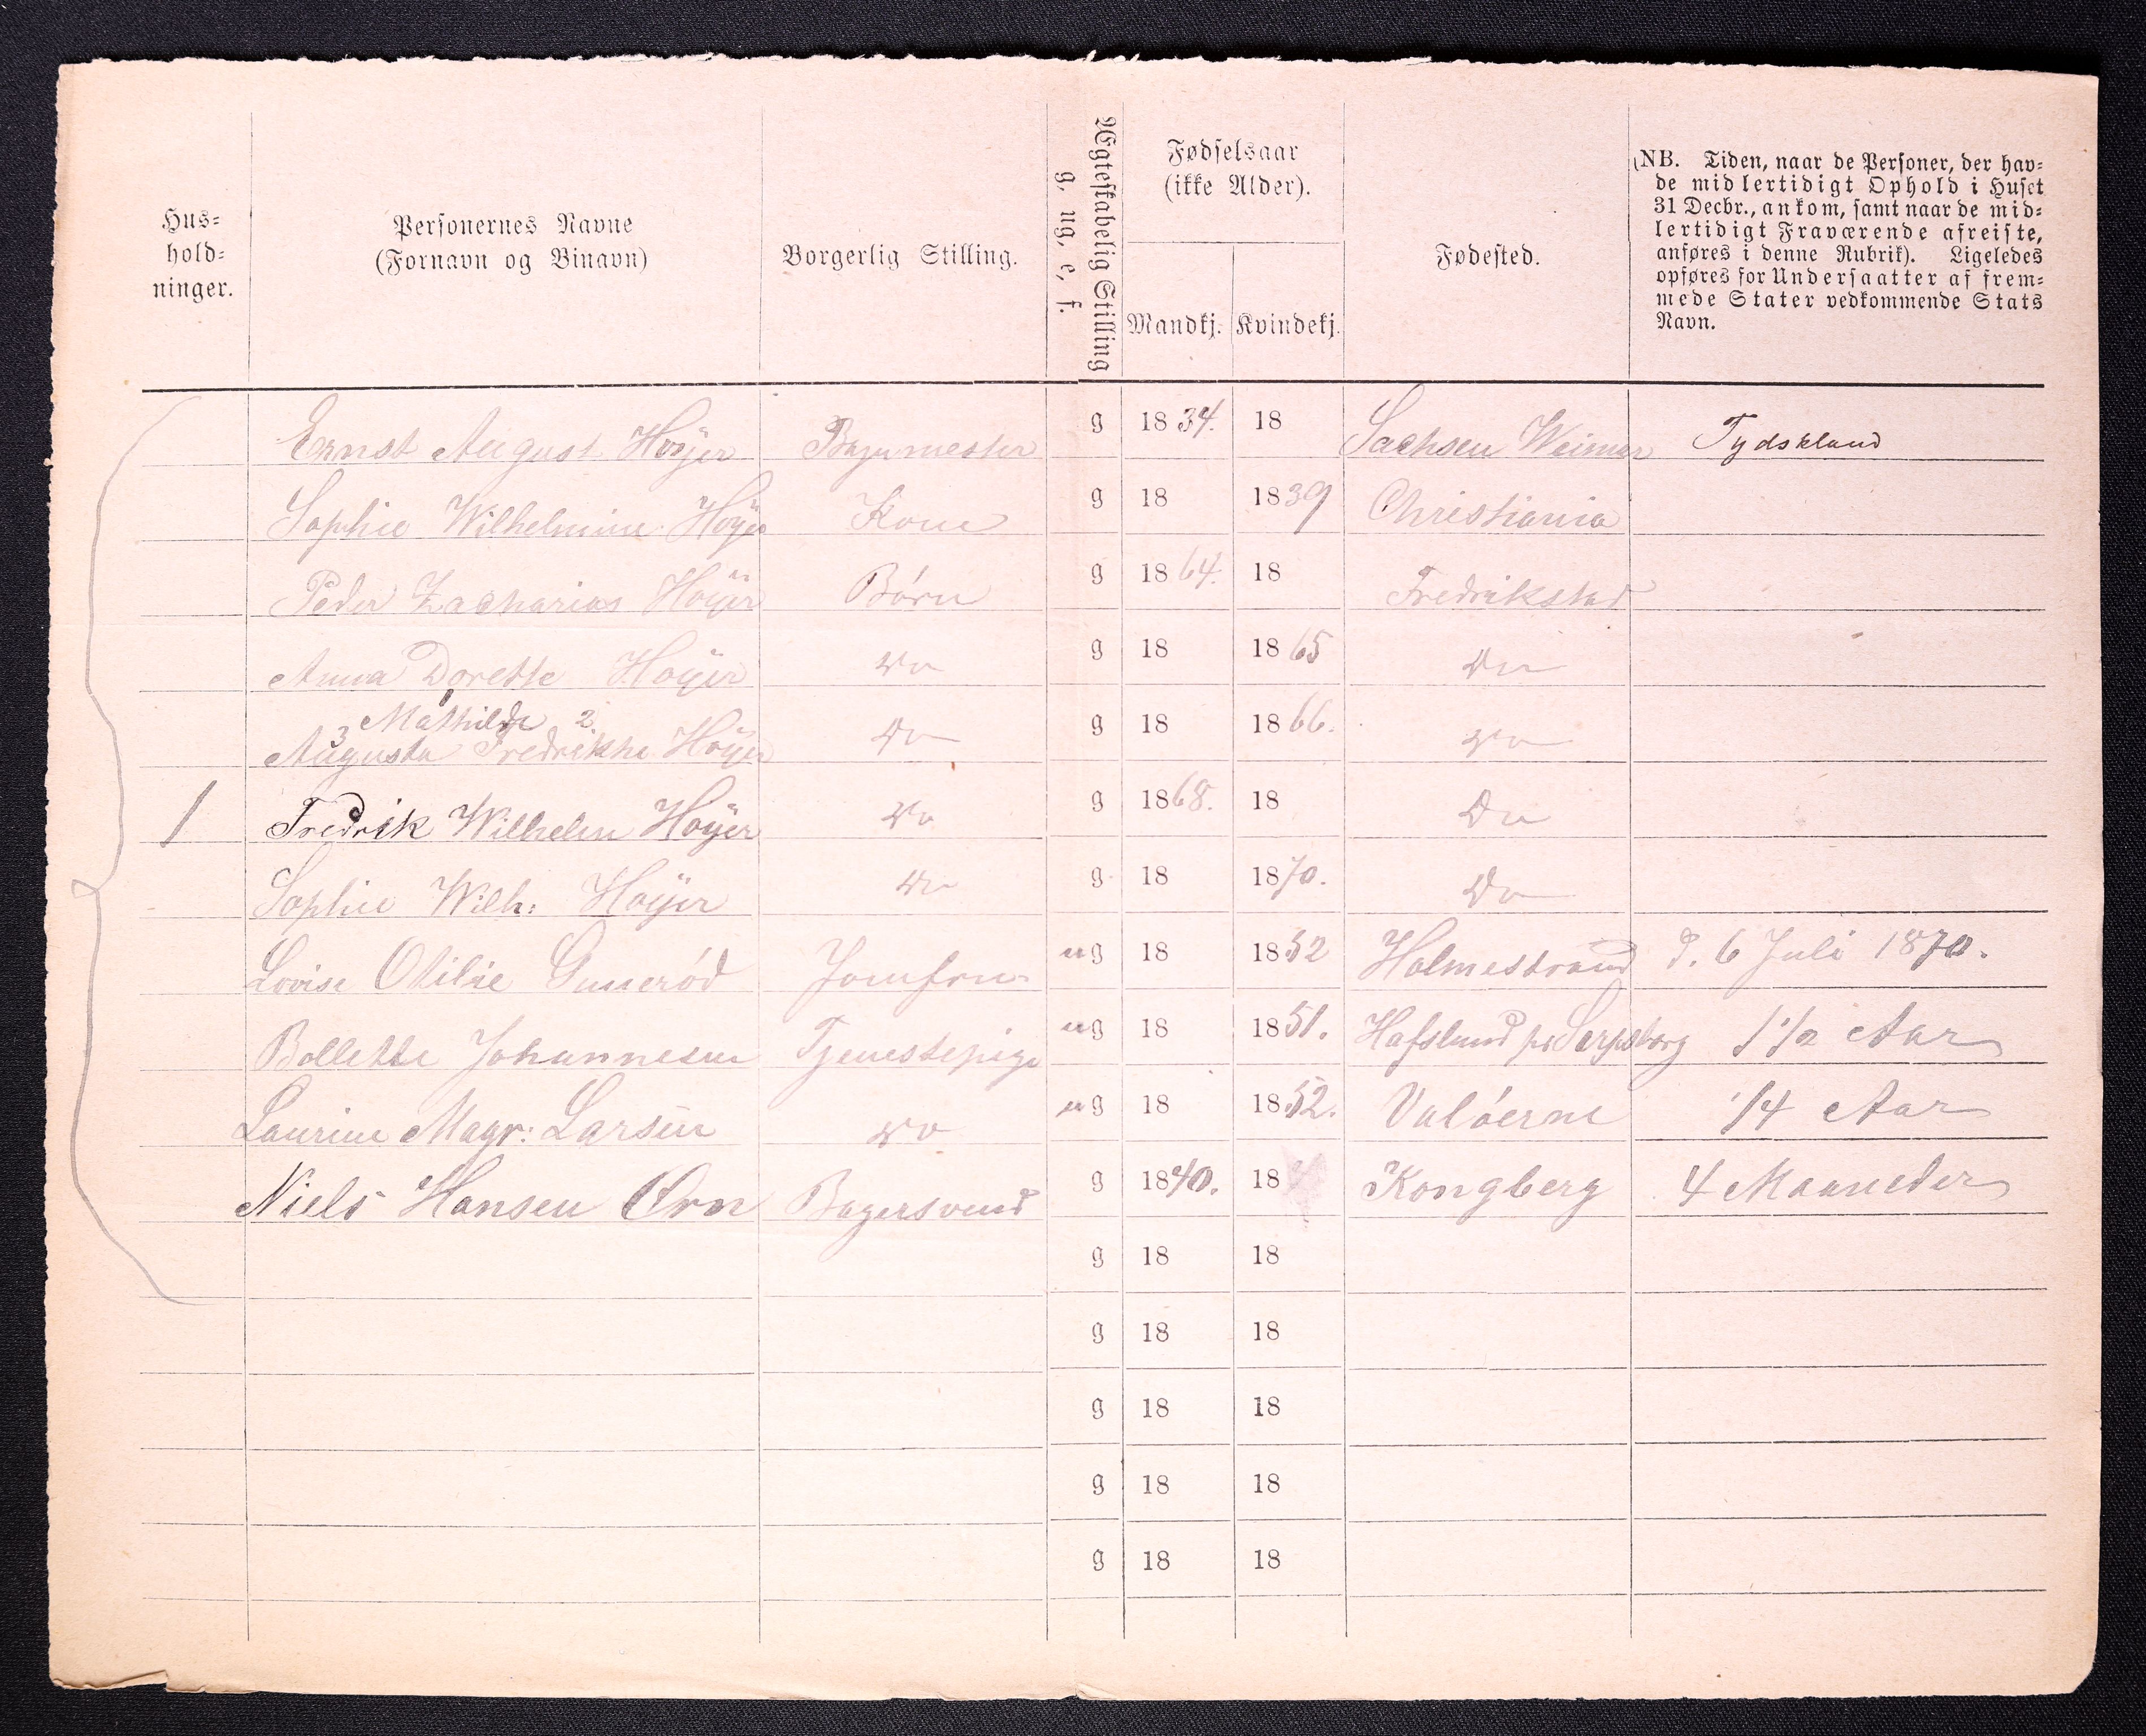 Hus-
hold-
ninger.
Personernes Navne
(Fornavn og Binavn)
Borgerlig Stilling.
Ægteskabelig Stilling
g, ug, e, f.
Fødselsaar
(ikke Alder).
Mandkj. Kvindekj.
Fødested.
(NB. Tiden, naar de Personer, der hav-
de midlertidigt Ophold i Huset
31 Decbr., ankom, samt naar de mid-
lertidigt Fraværende afreiste,
anføres i denne Rubrik). Ligeledes
opføres for Undersaatter af frem-
mede Stater vedkommende Stats
Navn.
Ernst August Høÿer Bagermester g 1834. 18 Sachsen Weimar Tydskland
Sophie Wilhelmine Høÿer Kone g 18 1839 Christiania
Peder Zacharias Høÿer Børn g 1864. 18 Fredrikstad
Anna Dorette Høÿer Do g 18 1865 Do
Mathilde 2
3 Augusta Fredrikke Høÿer Do g 18 1866. Do
1 Fredrik Wilhelm Høÿer Do g 1868. 18 Do
Sophie Wilh: Høÿer Do g 18 1870. Do
Lovise Otilie Gunerød Jomfru ug 18 1852 Holmestrand d. 6 Juli 1870.
Bollette Johannesen Tjenestepige ug 18 1851. Hafslund pr Sarpsborg 1 1/2 Aar
Laurine Magr: Larsen Do ug 18 1852. Valøerne 1/4 Aar
Niels Hansen Ørn Bagersvend g 1840. 18 Kongberg 4 Maaneder
g 18 18
g 18 18
g 18 18
g 18 18
g 18 18